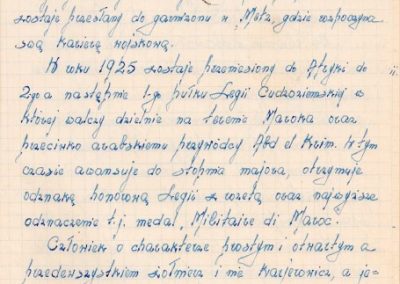 zostaje przesłany do garnizonu w „Metz, gdzie rozpoczyna
swą karierę wojskową.
W roku 1925 zostaje przeniesiony do Afryki do
2-go a następnie 1-go pułku Legii Cudzoziemskiej w
której walczy dzielnie na terenie Maroka oraz
przeciwko arabskiemu przywódcy Abd el Krim. W tym
czasie awansuje do stopnia majora, otrzymuje
odznakę honorową Legii z rozetą oraz najwyższe
odznaczenie t.j. medal, Militaire di Maroc.
Człowiek o charakterze prostym i otwartym a
przedewszystkiem żołnierz i nie karjerowicz, a je-